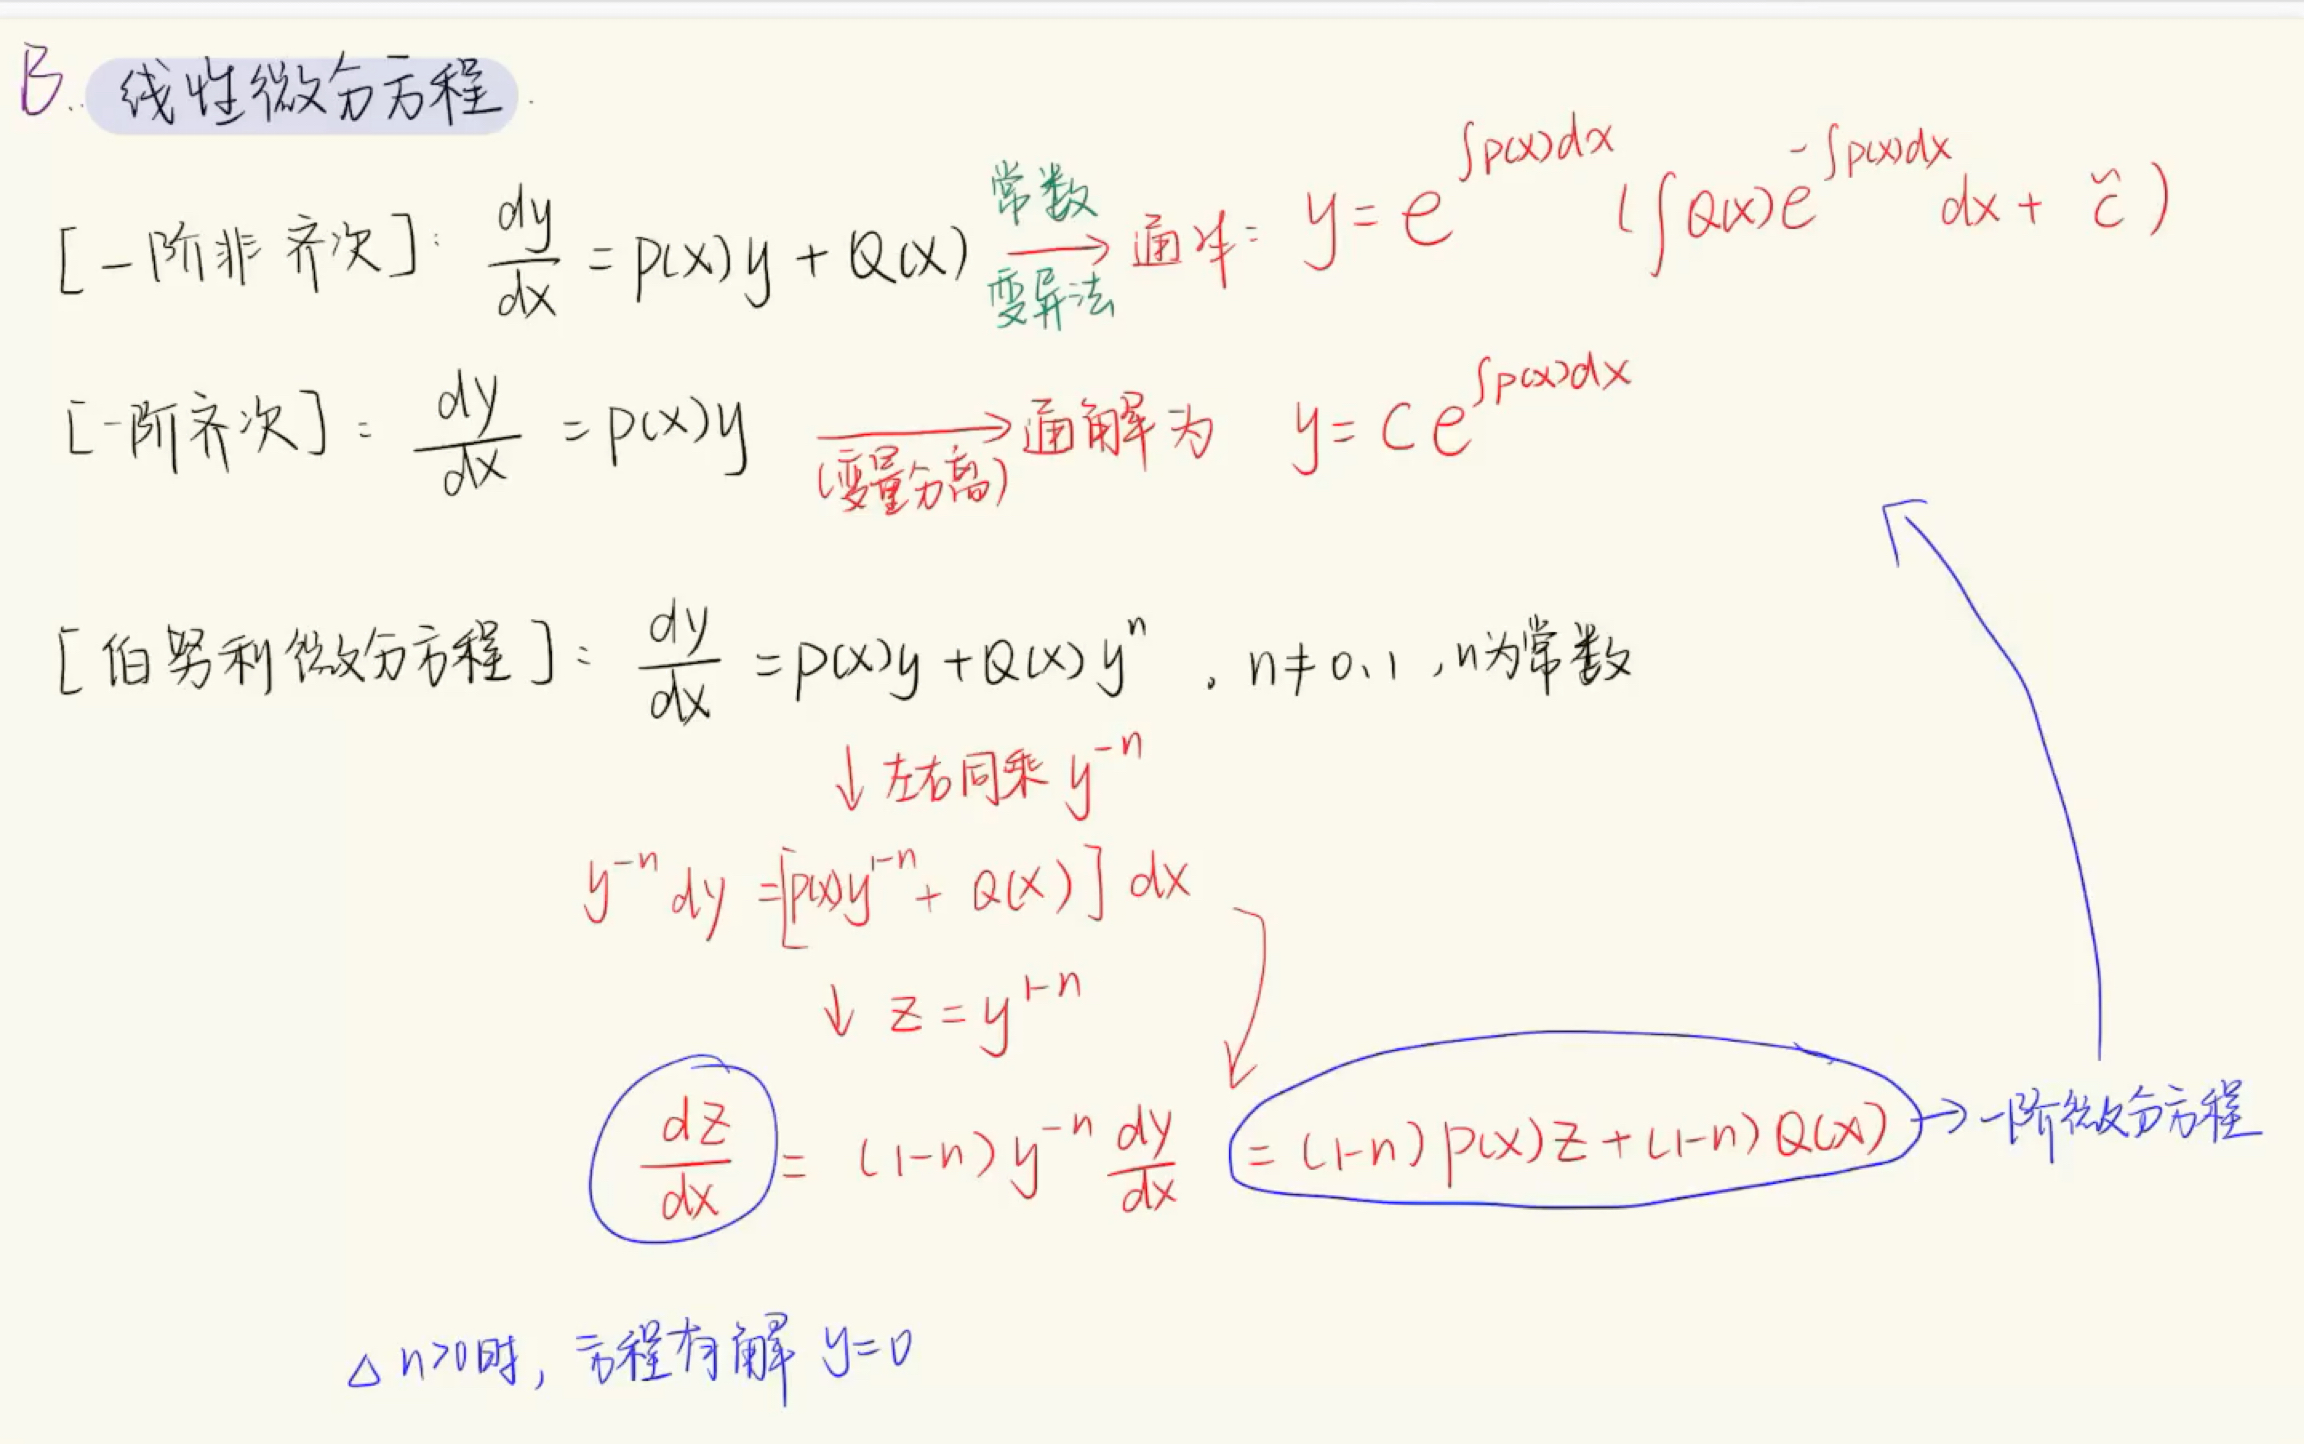 B. 线性微分方程
[一阶非齐次]: dy/dx = p(x)y + Q(x) 常数变异法 → 通解: y = e^{∫p(x)dx} (∫Q(x)e^{-∫p(x)dx} dx + c̃)
[一阶齐次]: dy/dx = p(x)y → (变量分离) 通解为 y = c e^{∫p(x)dx}
[伯努利微分方程]: dy/dx = p(x)y + Q(x)y^n , n≠0、1 , n为常数
↓ 左右同乘 y^{-n}
y^{-n} dy = [p(x)y^{1-n} + Q(x)] dx
↓ z = y^{1-n}
dz/dx = (1-n) y^{-n} dy/dx = (1-n) p(x)z + (1-n) Q(x) → 一阶微分方程
△ n>0时, 方程有解 y=0